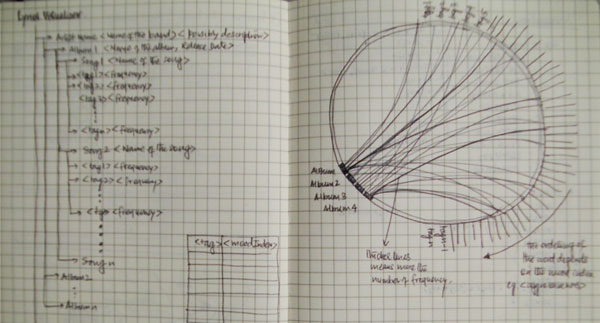 Lyrical Visualizer
Artist name <Name of the band> <Possibly description>
Album 1 <Name of the album, Release Date>
Song 1 <Name of the song>
<tag1> <frequency>
<tag2> <frequency>
<tag3> <frequency>
<tag n> <frequency>
Song 2 <Name of the song>
<tag1> <frequency>
<tag2> <frequency>
<tag n> <frequency>
Song n
Album 2
Album n
<tag> <mood index>
Album
Album 2
Album 3
Album 4
Thicker lines
means more the
number of frequency.
tag n
tag n-1
The ordering of
the word depends
on the mood index
eg